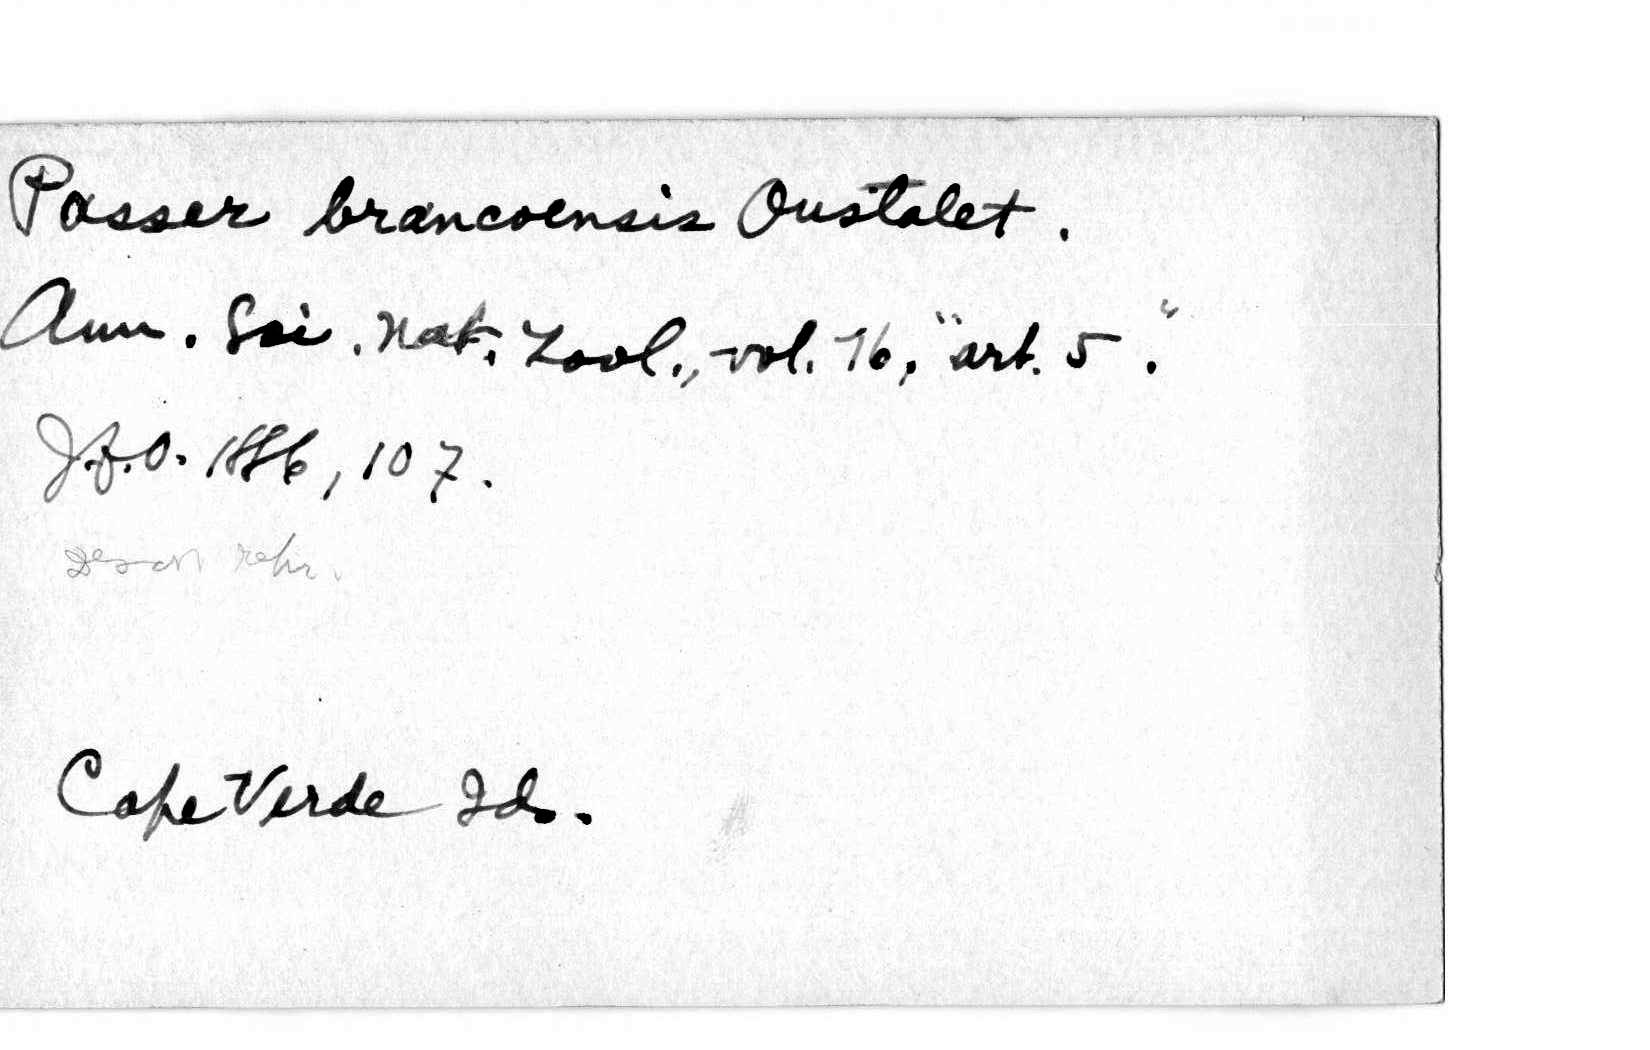 Passer brancoensis Oustalet.
Ann. Sci. Nat. Zool., vol. 16, "art. 5".
J.f.O. 1886, 107.
Cape Verde Ids.